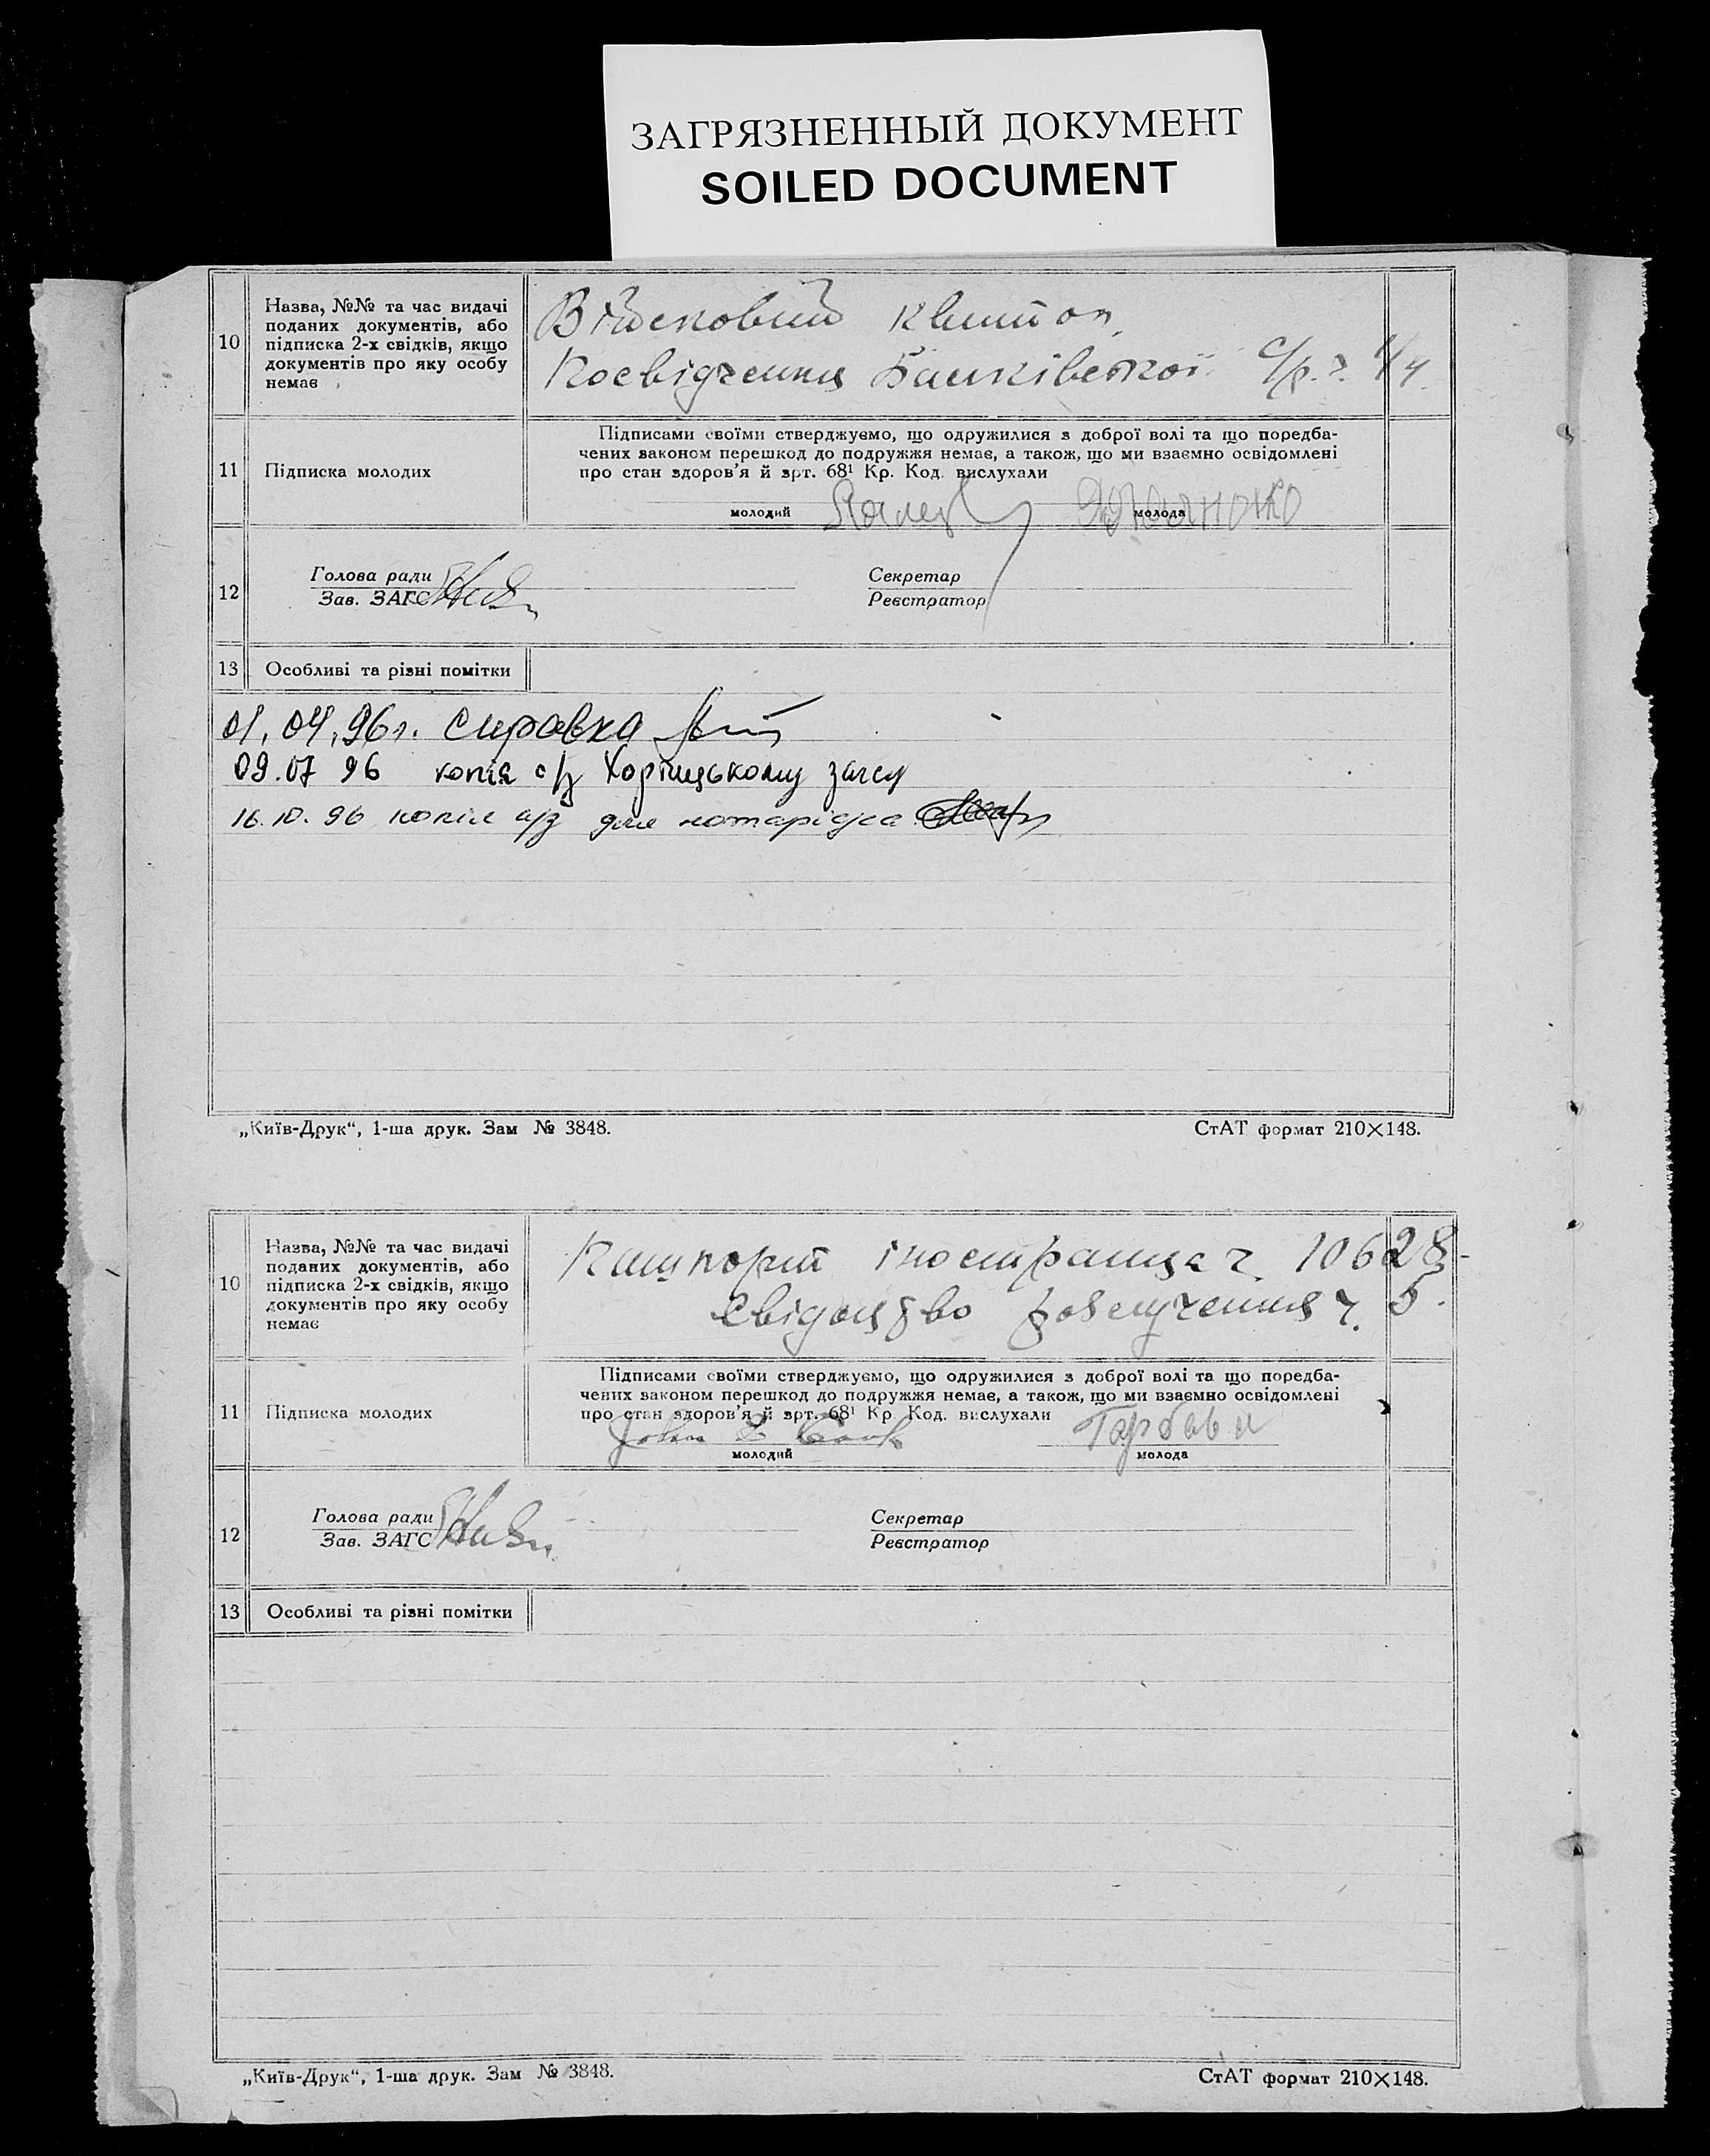 ЗАГРЯЗНЕННЫЙ ДОКУМЕНТ
SOILED DOCUMENT
10
Назва, №№ та час видачі
поданих документів, або
підписка 2-х свідків, якщо
документів про яку особу
немає
Військовий квиток,
Посвідчення с/р. ч. 1/4.
11
Підписка молодих
Підписами своїми стверджуємо, що одружилися з доброї волі та що поредба-
чених законом перешкод до подружжя немає, а також, що ми взаємно освідомлені
про стан здоров'я й арт. 68¹ Кр. Код. вислухали
молодий
молода
12
Голова ради
Зав. ЗАГС
Секретар
Реєстратор
13
Особливі та різні помітки
01.04.96г. справка
09.07 96 копія с/з Хортицькому загсу
16.10.96 копія а/з для нотаріуса
„Київ-Друк“, 1-ша друк. Зам № 3848.
СтАТ формат 210×148.
10
Назва, №№ та час видачі
поданих документів, або
підписка 2-х свідків, якщо
документів про яку особу
немає
Пашпорт іностранца ч. 10628-
свідоцтво розлучення ч. 5.
11
Підписка молодих
Підписами своїми стверджуємо, що одружилися з доброї волі та що поредба-
чених законом перешкод до подружжя немає, а також, що ми взаємно освідомлені
про стан здоров'я й арт. 68¹ Кр Код. вислухали
John
молодий
молода
12
Голова ради
Зав. ЗАГС
Секретар
Реєстратор
13
Особливі та різні помітки
„Київ-Друк“, 1-ша друк. Зам № 3848.
СтАТ формат 210×148.